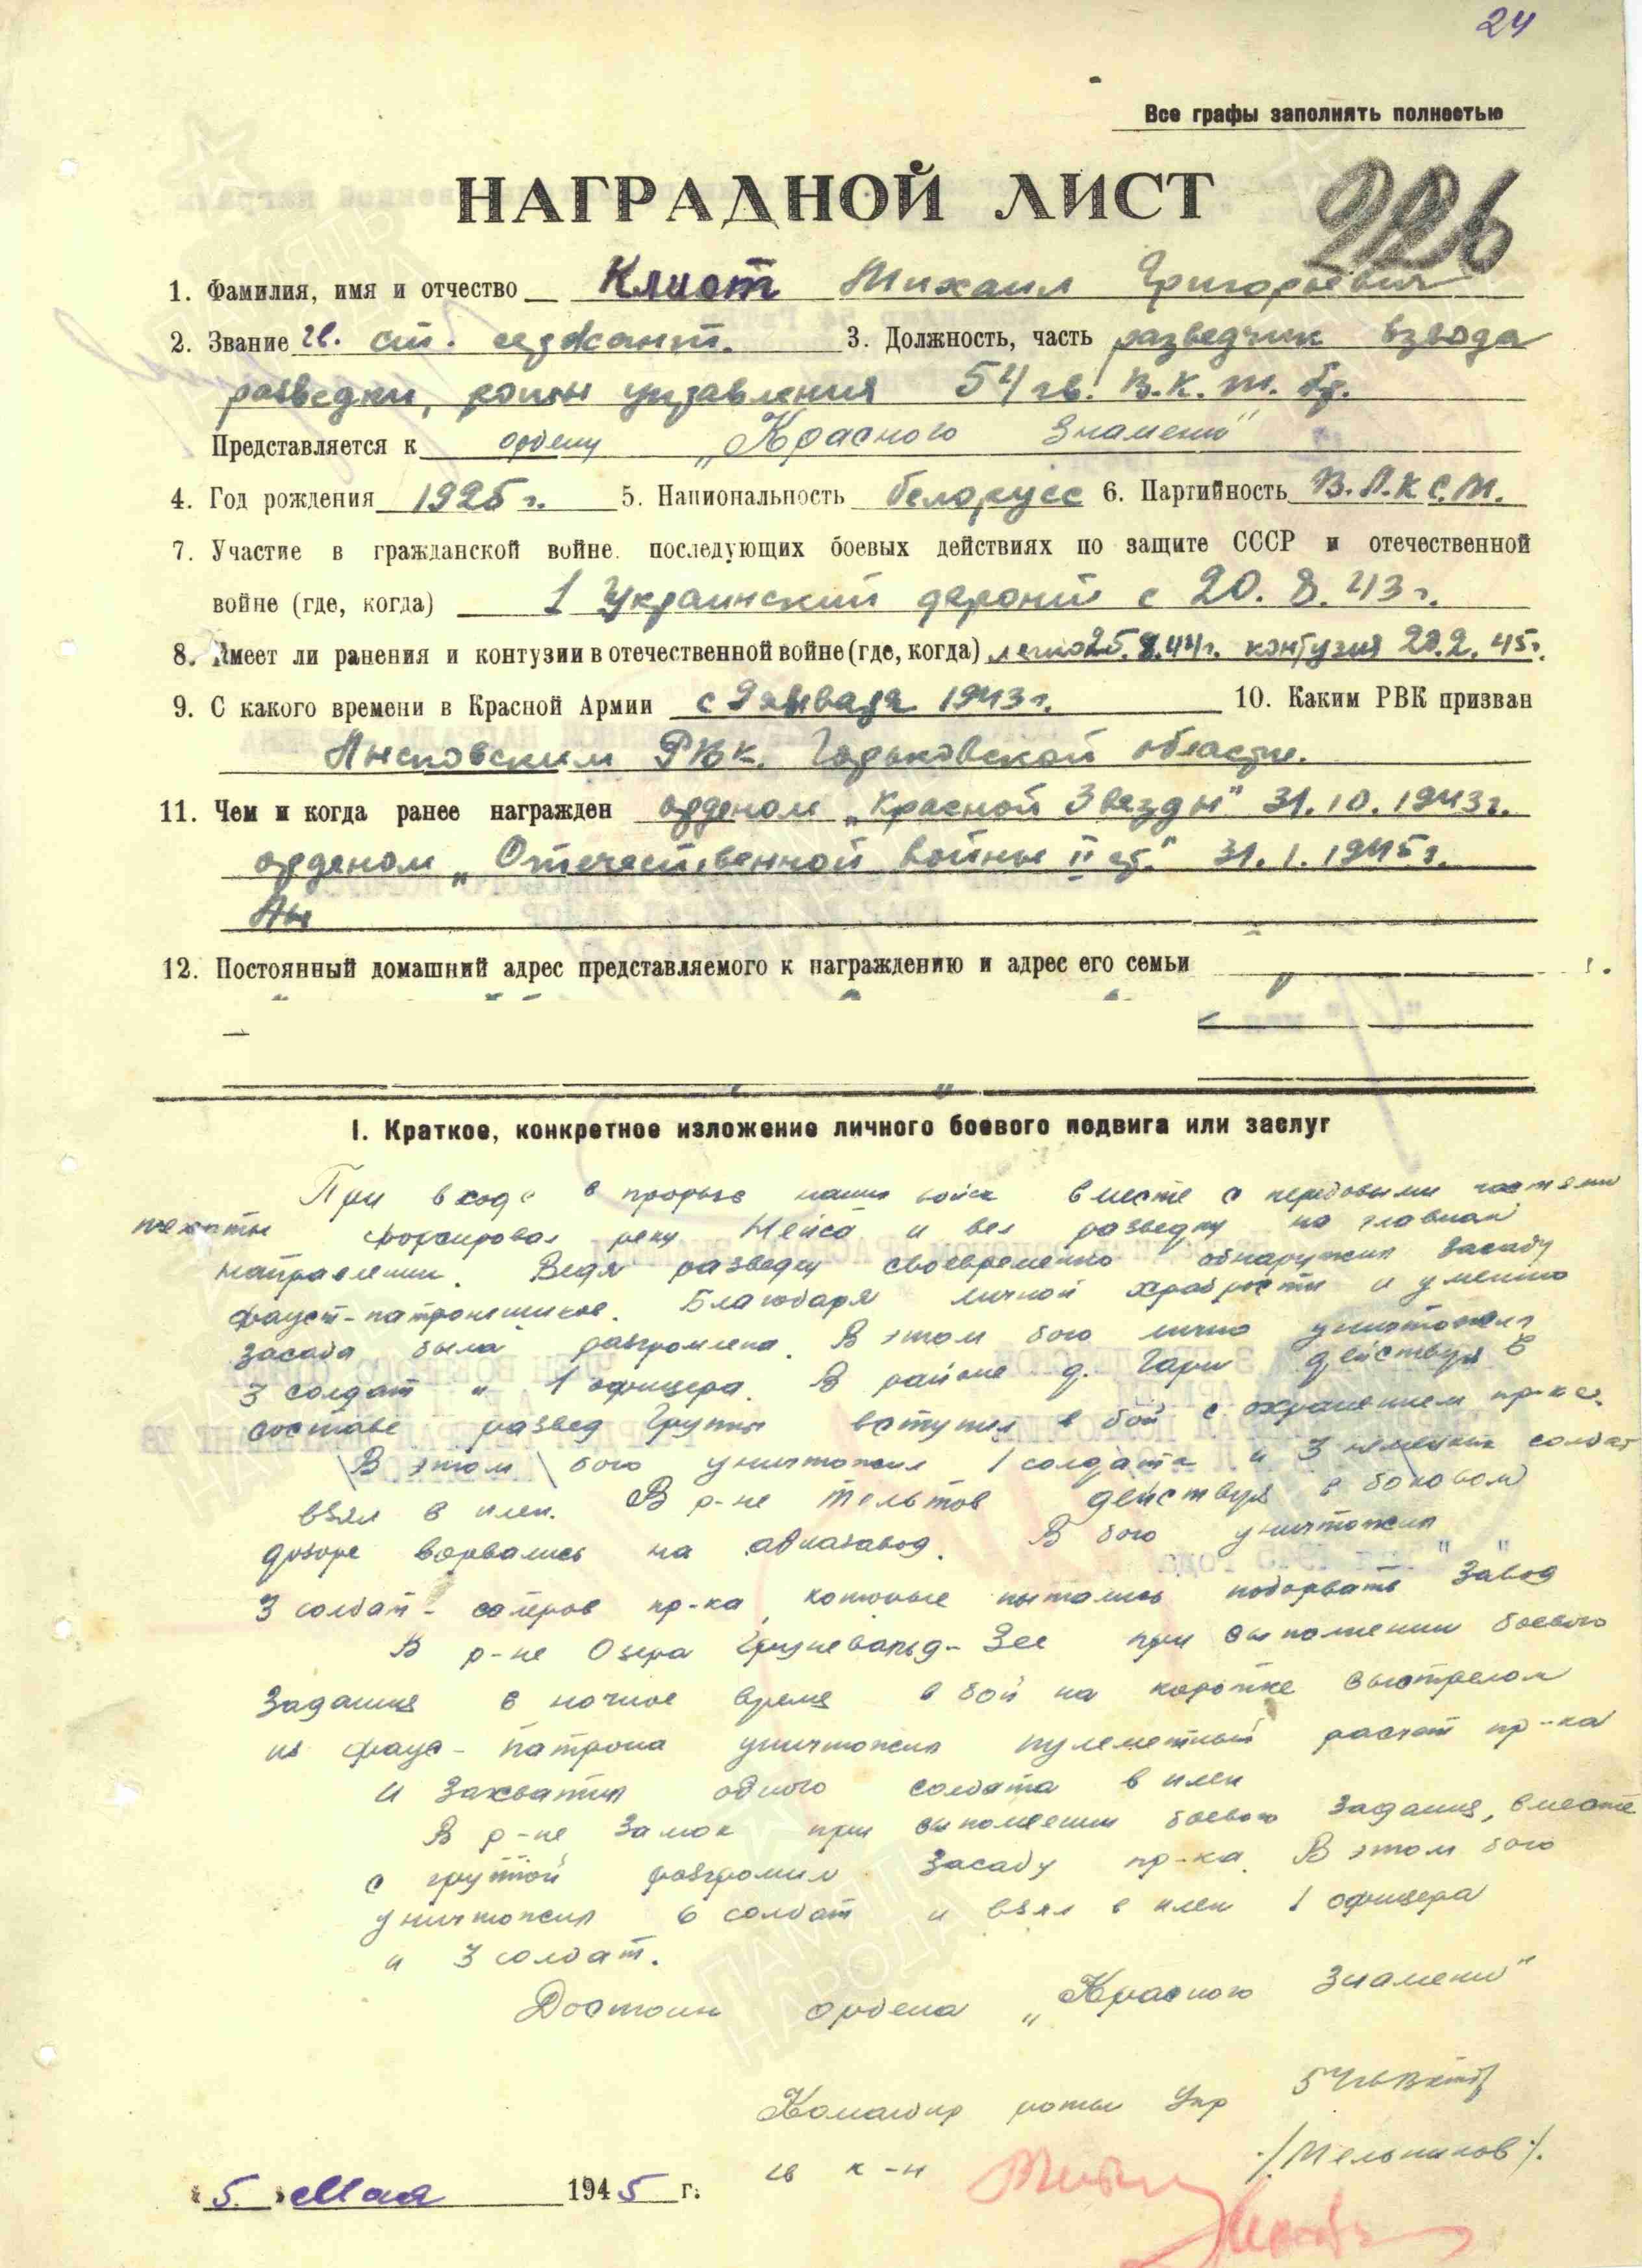 24
Все графы заполнять полностью
НАГРАДНОЙ ЛИСТ
226
1. Фамилия, имя и отчество Клиот Михаил Григорьевич
2. Звание гв. ст. сержант. 3. Должность, часть разведчик взвода
разведки, роты управления 54 гв. В.К.Т.бр.
Представляется к ордену „Красного Знамени"
4. Год рождения 1925 г. 5. Национальность белорусс 6. Партийность В.Л.К.С.М.
7. Участие в гражданской войне, последующих боевых действиях по защите СССР и отечественной
войне (где, когда) 1 Украинский фронт с 20.8.43 г.
8. Имеет ли ранения и контузии в отечественной войне (где, когда) легко 25.8.44г. контузия 20.2.45г.
9. С какого времени в Красной Армии с января 1943 г. 10. Каким РВК призван
Лысковским РВК. Горьковской области.
11. Чем и когда ранее награжден орденом „Красной Звезды" 31.10.1943 г.
орденом „Отечественной войны II ст." 31.1.1945 г.
12. Постоянный домашний адрес представляемого к награждению и адрес его семьи
I. Краткое, конкретное изложение личного боевого подвига или заслуг
При входе в прорыв наших войск вместе с передовыми частями
пехоты форсировал реку Нейса и вел разведку на главном
направлении. Ведя разведку своевременно обнаружил засаду
фауст-патронщиков. Благодаря личной храбрости и умению
засада была разгромлена. В этом бою лично уничтожил
3 солдат и 1 офицера. В районе д. Гари действуя в
составе развед группы вступил в бой с охранением пр-ка.
В этом бою уничтожил 1 солдата и 3 немецких солдат
взял в плен. В р-не Тельтов действуя в боковом
дозоре ворвались на авиазавод. В бою уничтожил
3 солдат-саперов пр-ка, которые пытались подорвать завод
В р-не Озера Грюневальд-Зее при выполнении боевого
задания в ночное время в бой на коротке выстрелом
из фаус-патрона уничтожил пулеметный расчет пр-ка
и захватил одного солдата в плен
В р-не Замок при выполнении боевого задания, вместе
с группой разгромил засаду пр-ка. В этом бою
уничтожил 6 солдат и взял в плен 1 офицера
и 3 солдат.
Достоин ордена „Красного Знамени"
Командир роты Упр 54гвВктб
гв к-н /Мельников/.
„5" Мая 1945 г.